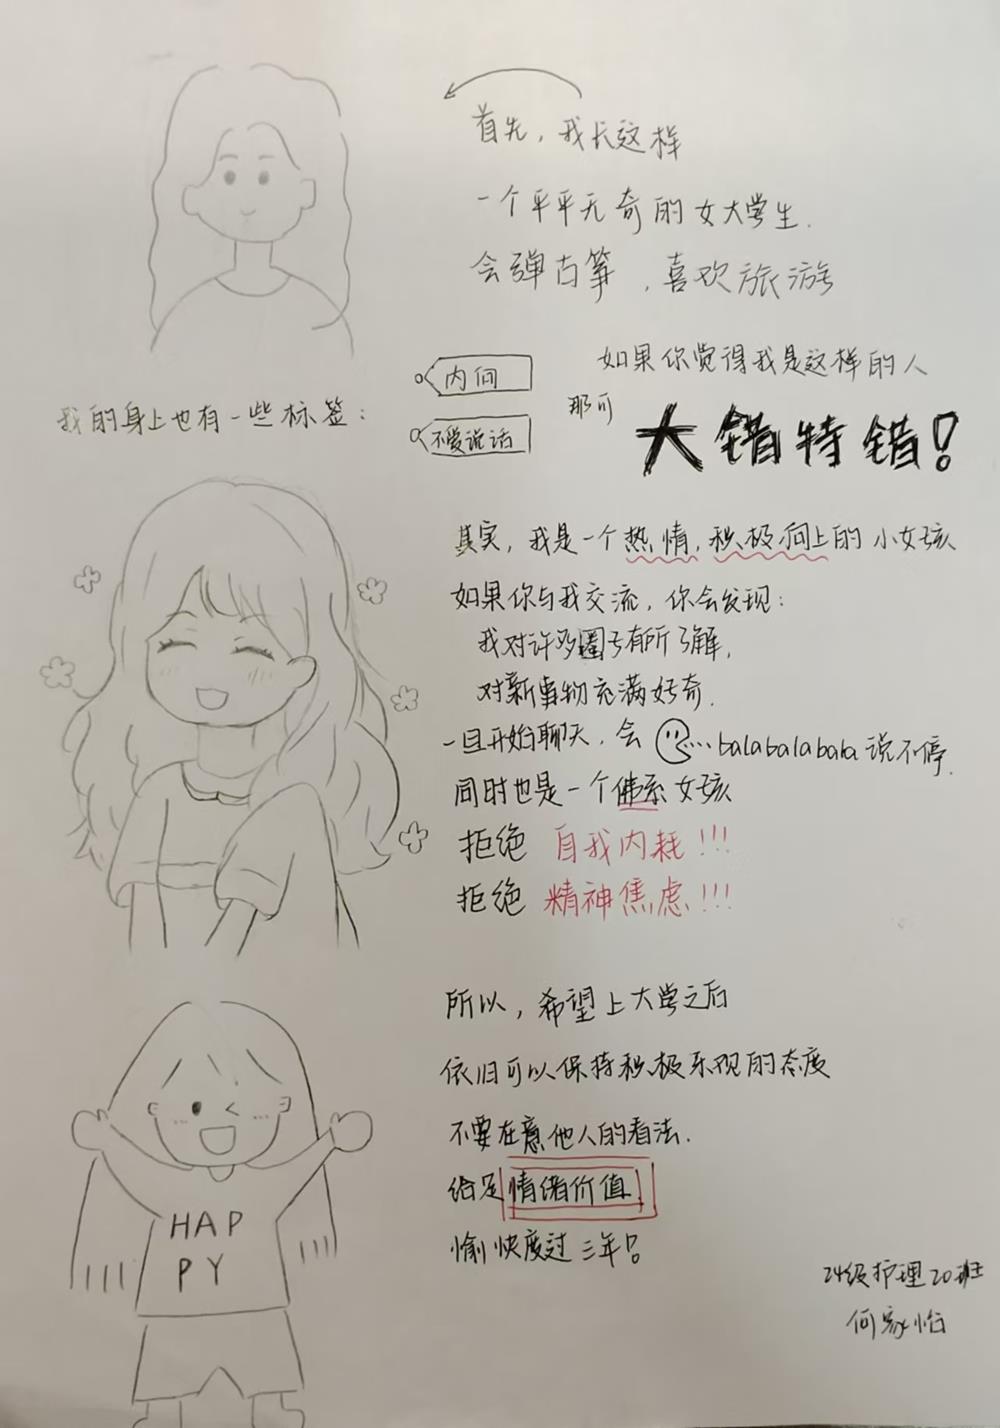 首先，我长这样
一个平平无奇的女大学生.
会弹古筝，喜欢旅游
我的身上也有一些标签：
内向
不爱说话
如果你觉得我是这样的人
那可
大错特错！
其实，我是一个热情，积极向上的小女孩
如果你与我交流，你会发现：
我对许多圈子有所了解，
对新事物充满好奇.
一旦开始聊天，会 ...balabalabala说不停.
同时也是一个佛系女孩
拒绝 自我内耗!!!
拒绝 精神焦虑!!!
所以，希望上大学之后
依旧可以保持积极乐观的态度
不要在意他人的看法.
给足情绪价值
愉快度过三年！
HAP
PY
24级护理20班
何家怡